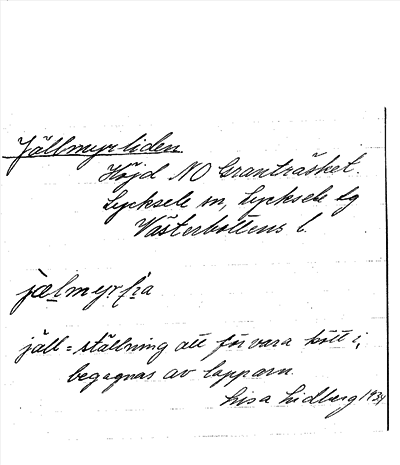 Jällmyrliden
Höjd NO Granträsket.
Lycksele sn, Lycksele lg
Västerbottens l.
jælmyrlia
jäll = ställning att förvara kött i,
begagnas av lapparn.
Lisa Lidberg 1931